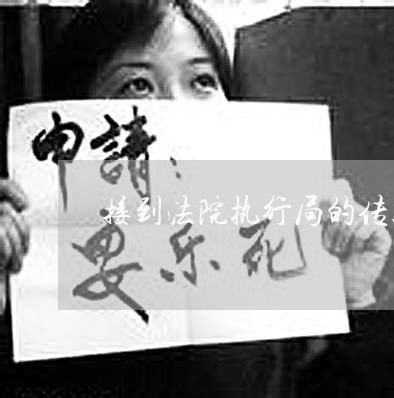 申請：
接到法院执行局的传
安乐死